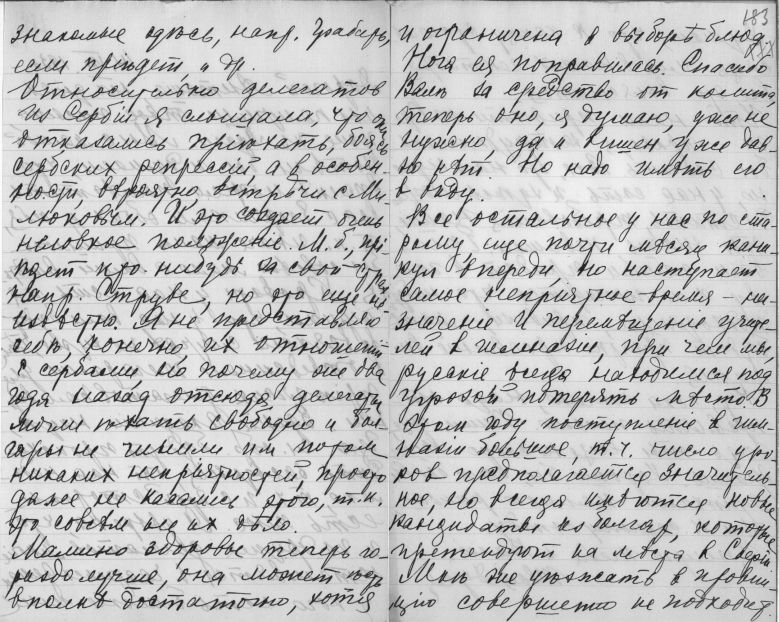 знакомые здѣсь, напр. Грабарь,
если пріѣдет, и др.
Относительно делегатов
из Сербіи я слышала, что они
отказались пріѣхать, боясь
сербских репрессій, а в особен-
ности, вѣроятно, встрѣчи с Ми-
люковым. И это создает очень
неловкое положеніе. М. б., прі-
ѣдет кто-нибудь за свой страх
напр. Струве, но это еще не
извѣстно. Я не представляю
себѣ, конечно, их отношеній
с сербами, но почему же два
года назад отсюда делегаты
могли ѣхать свободно и бол-
гары не чинили им потом
никаких непріятностей, просто
даже не касались этого, т. к.
это совсѣм не их дѣло.
Мамино здоровье теперь го-
раздо лучше, она может ѣсть
вполнѣ достаточно, хотя
183
и ограничена в выборѣ блюд.
Нога ея поправилась. Спасибо
Вам за средство от
теперь оно, я думаю, уже не
нужно, да и вишен уже дав-
но нѣт. Но надо имѣть его
в виду.
Все остальное у нас по ста-
рому, еще почти мѣсяц кани-
кул впереди, но наступает
самое непріятное время – на-
значеніе и перемѣщеніе учите-
лей в гимназіи, при чем мы
русскіе всегда находимся под
угрозой потерять мѣсто. В
этом году поступленіе в гим-
назіи большое, т. ч. число уро-
ков предполагается значитель-
ное, но всегда имѣются новые
кандидаты из болгар, которые
претендуют на мѣста в Софіи.
Мнѣ же уѣзжать в провин-
цію совершенно не подходит.